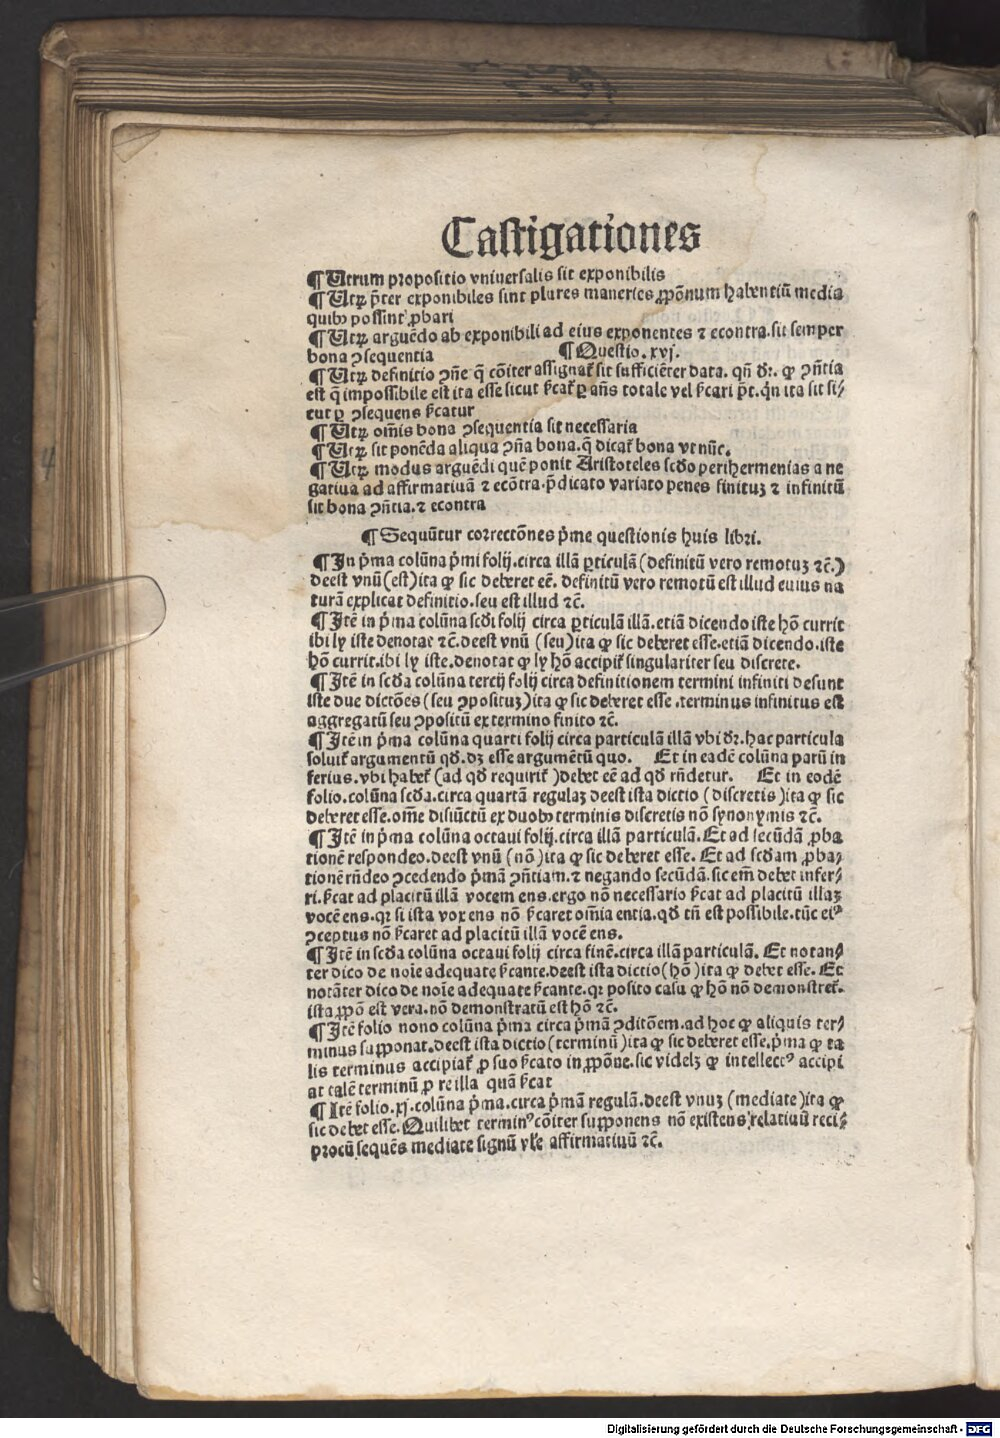 Castigationes
¶ Utrum propositio vniuersalis sit exponibilis
¶ Utrꝝ p̄ter exponibiles sint plures maneries ꝓpōnum habentiū media
quibꝰ possint ꝓbari
¶ Utrꝝ arguēdo ab exponibili ad eius exponentes ⁊ econtra.sit semper
bona ꝯsequentia ¶ Questio.xvj.
¶ Utrꝝ definitio ꝯn̄e q̄ cōiter assignat᷑ sit sufficiēter data. qn̄ dr̄. ꝙ ꝯn̄tia
est q̄ impossibile est ita esse sicut s̄cat᷑ ꝑ an̄s totale vel s̄cari pt̄. qn̄ ita sit si⸗
cut ꝑ ꝯsequens s̄catur
¶ Utrꝝ om̄is bona ꝯsequentia sit necessaria
¶ Utrꝝ sit ponēda aliqua ꝯn̄a bona.q̄ dicat᷑ bona vt nūc.
¶ Utrꝝ modus arguēdi quē ponit Aristoteles scd̄o perihermenias a ne
gatiua ad affirmatiuā ⁊ ecōtra.p̄dicato variato penes finituꝫ ⁊ infinitū
sit bona ꝯn̄tia.⁊ econtra
¶ Sequūtur correctōnes p̄me questionis huis libri.
¶ In p̄ma colūna p̄mi folij.circa illā ꝑticulā (definitū vero remotuꝫ ⁊c̄.)
deest vnū (est) ita ꝙ sic deberet eē. definitū vero remotū est illud cuius na
turā explicat definitio.seu est illud ⁊c̄.
¶ Itē in p̄ma colūna scd̄i folij circa ꝑticulā illā.etiā dicendo iste hō currit
ibi ly iste denotat ⁊c̄.deest vnū (seu) ita ꝙ sic deberet esse.etiā dicendo.iste
hō currit.ibi ly iste.denotat ꝙ ly hō accipit᷑ singulariter seu discrete.
¶ Itē in scd̄a colūna tercij folij circa definitionem termini infiniti desunt
iste due dictōes (seu ꝯposituꝫ) ita ꝙ sic deberet esse.terminus infinitus est
aggregatū seu ꝯpositū ex termino finito ⁊c̄.
¶ Itē in p̄ma colūna quarti folij circa particulā illā vbi dr̄.hac particula
soluit᷑ argumentū qd̄.dꝫ esse argumētū quo. Et in eadē colūna parū in
ferius.vbi habet᷑ (ad qd̄ requirit᷑) debet eē ad qd̄ rn̄detur. Et in eodē
folio.colūna scd̄a.circa quartā regulaꝫ deest ista dictio (discretis) ita ꝙ sic
deberet esse.om̄e disiūctū ex duobꝰ terminis discretis nō synonymis ⁊c̄.
¶ Itē in p̄ma colūna octaui folij.circa illā particulā.Et ad secūdā ꝓba
tionē respondeo.deest vnū (nō) ita ꝙ sic deberet esse. Et ad scd̄am ꝓba⸗
tionē rn̄deo ꝯcedendo p̄mā ꝯn̄tiam.⁊ negando secūdā.sic em̄ debet infer⸗
ri.s̄cat ad placitū illā vocem ens.ergo nō necessario s̄cat ad placitū illaꝫ
vocē ens.qꝛ si ista vox ens nō s̄caret om̄ia entia.qd̄ tn̄ est possibile.tūc eiꝰ
ꝯceptus nō s̄caret ad placitū illā vocē ens.
¶ Itē in scd̄a colūna octaui folij circa finē.circa illā particulā. Et notan⸗
ter dico de noīe adequate s̄cante.deest ista dictio (hō) ita ꝙ debet esse. Et
notāter dico de noīe adequate s̄cante.qꝛ posito casu ꝙ hō nō demonstret᷑.
ista ꝓpō est vera.nō demonstratū est hō ⁊c̄.
¶ Itē folio nono colūna p̄ma circa p̄mā ꝯditōem.ad hoc ꝙ aliquis ter⸗
minus supponat.deest ista dictio (terminū) ita ꝙ sic deberet esse.p̄ma ꝙ ta
lis terminus accipiat᷑ ꝓ suo s̄cato in ꝓpōne.sic videlꝫ ꝙ intellectꝰ accipi
at talē terminū ꝓ re illa quā s̄cat
¶ Itē folio.xj.colūna p̄ma.circa p̄mā regulā.deest vnuꝫ (mediate) ita ꝙ
sic debet esse.Quilibet terminꝰ cōiter supponens nō existens relatiuū reci⸗
procū sequēs mediate signū vl̄e affirmatiuū ⁊c̄.
4
Digitalisierung gefördert durch die Deutsche Forschungsgemeinschaft - DFG